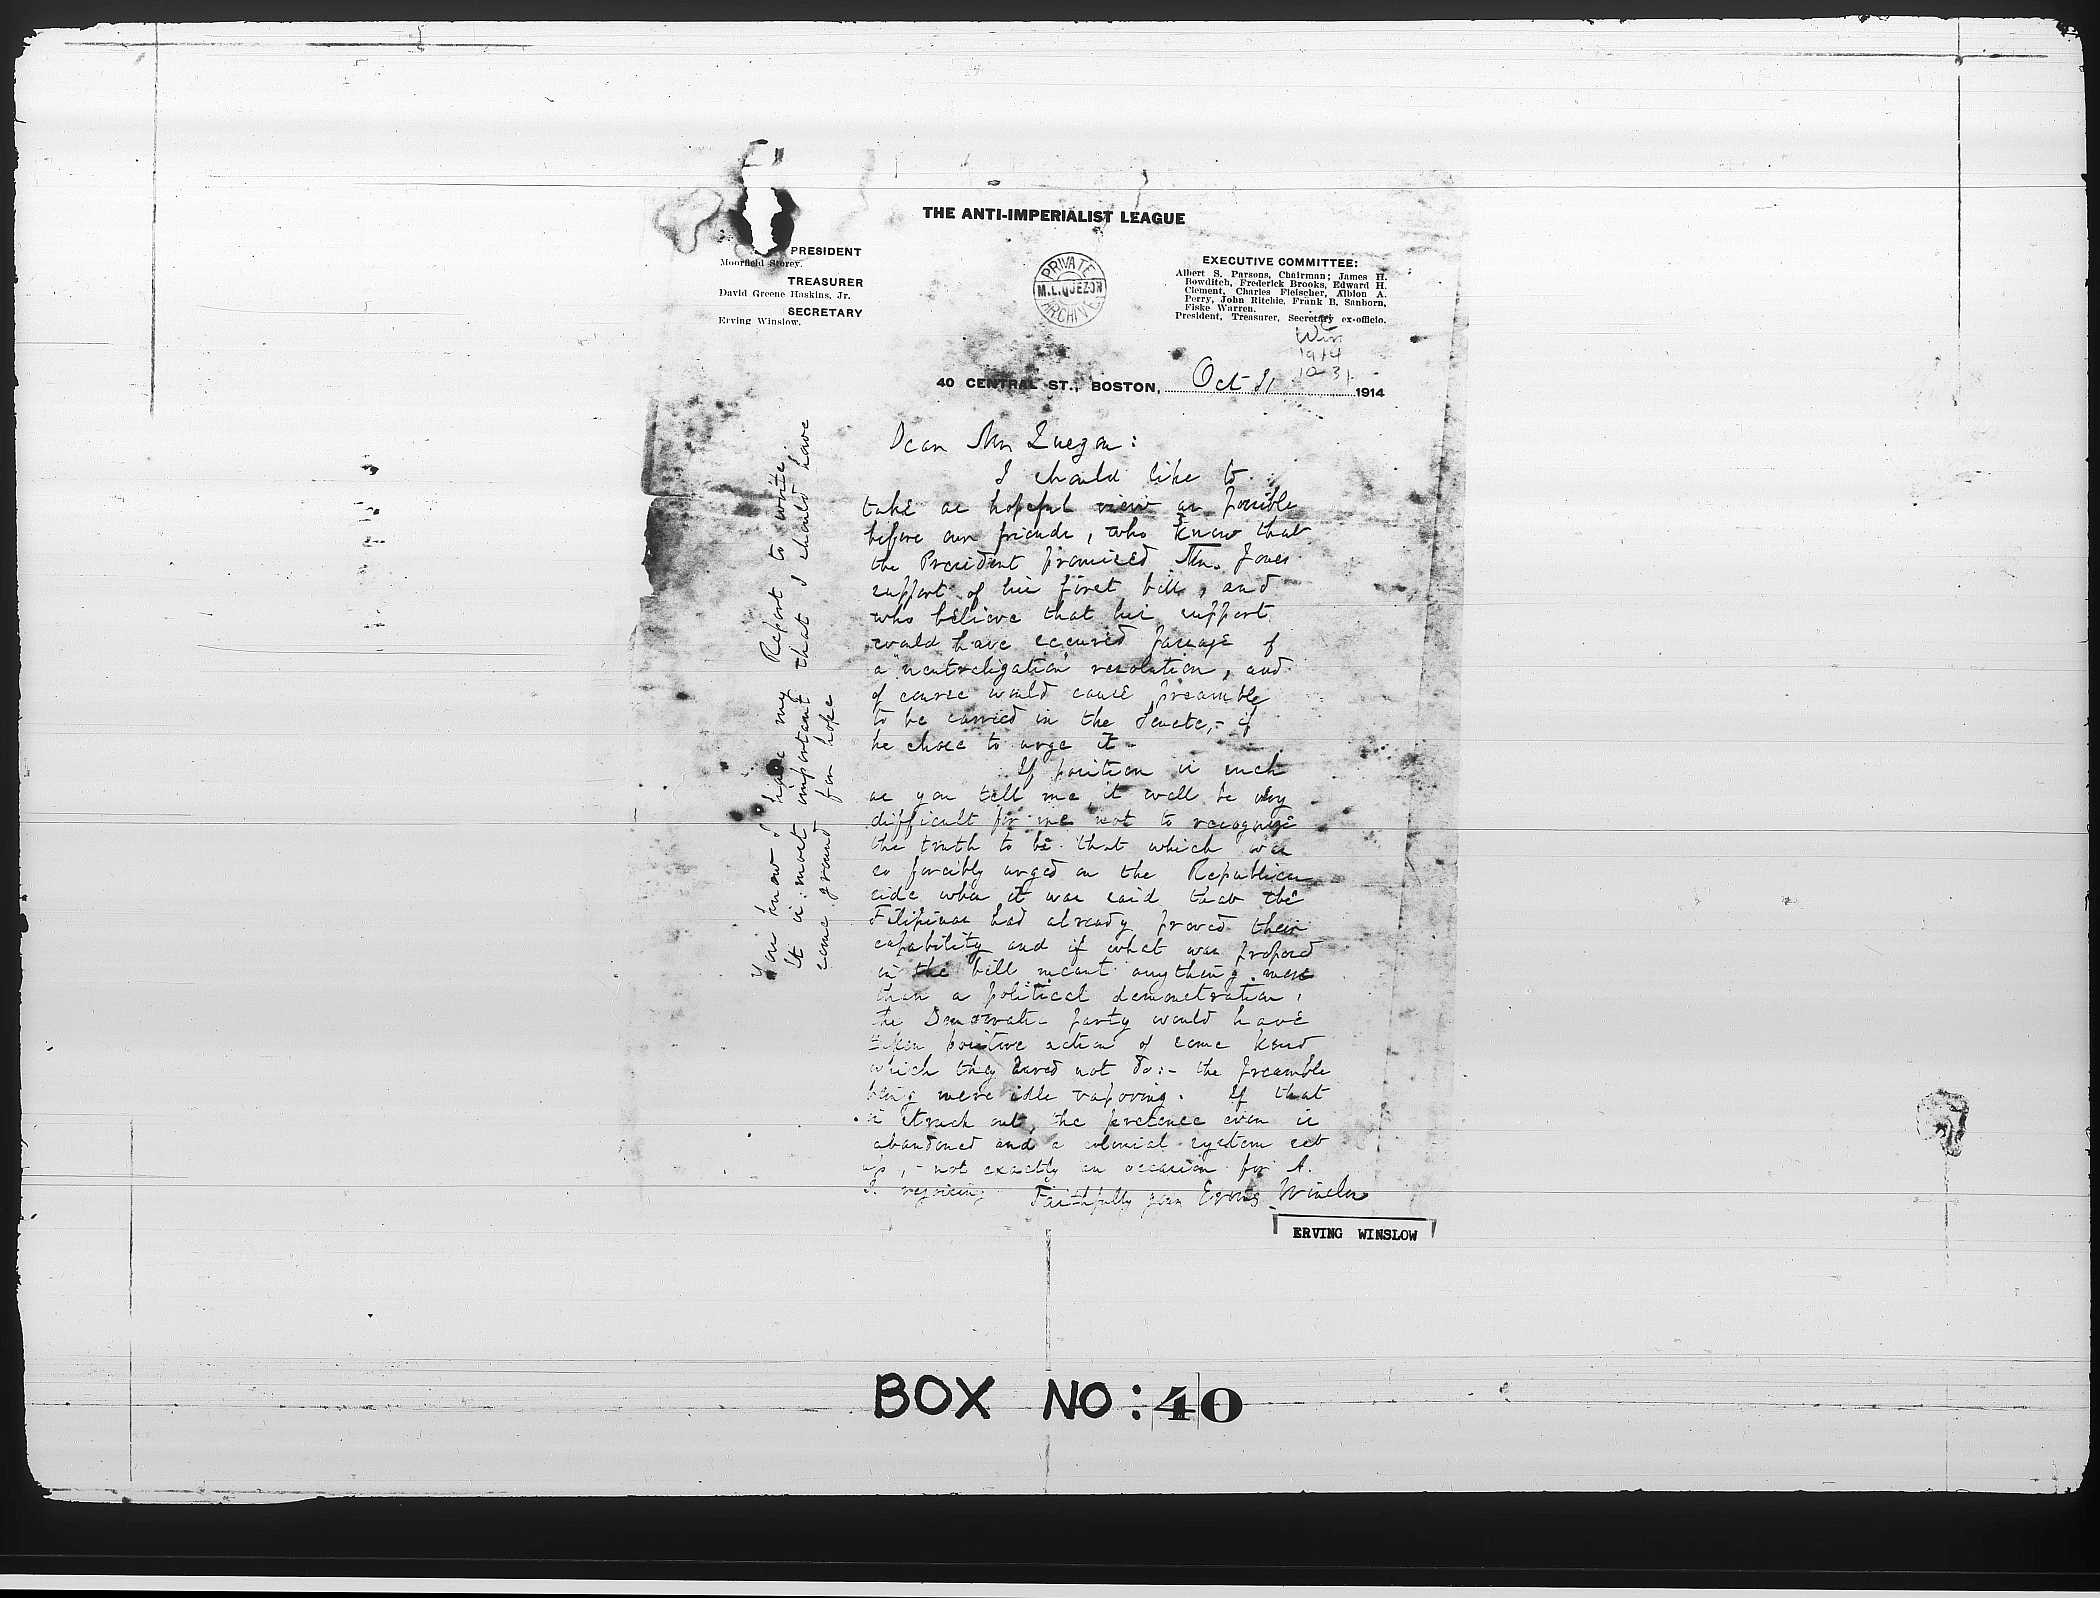 THE ANTI-IMPERIALIST LEAGUE
PRESIDENT
Moorfield Storey.
TREASURER
David Greene Haskins, Jr.
SECRETARY
Erving Winslow.
PRIVATE
M.L.QUEZON
ARCHIVE
EXECUTIVE COMMITTEE:
Albert S. Parsons, Chairman; James H.
Bowditch, Frederick Brooks, Edward H.
Clement, Charles Fleischer, Albion A.
Perry, John Ritchie, Frank B. Sanborn,
Fiske Warren.
President, Treasurer, Secretary ex-officio.
Win
1914
10-31
40 CENTRAL ST., BOSTON, Oct 31 1914
Dear Mr Quezon:
I should like to
take as hopeful view as possible
before our friends, who know that
the President promised Mr. Jones
support of his first bill, and
who believe that his support
would have secured passage of
a "neutralization" resolution, and
of course would cause preamble
to be carried in the Senate, - if
he chose to urge it -
If position is such
as you tell me it will be very
difficult for me not to recognize
the truth to be that which was
so forcibly urged on the Republican
side when it was said that the
Filipinos had already proved their
capability and if what was proposed
in the bill meant anything more
than a political demonstration,
the Democratic party would have
taken positive action of some kind
which they dared not do: - the preamble
being mere idle vaporing. If that
is struck out, the pretence even is
abandoned and a colonial system set
up, - not exactly an occasion for A.
I. rejoicing. Faithfully yours Erving Winslow
ERVING WINSLOW
You know I have my Report to write
It is most important that I should have
some ground for hope
BOX NO: 40